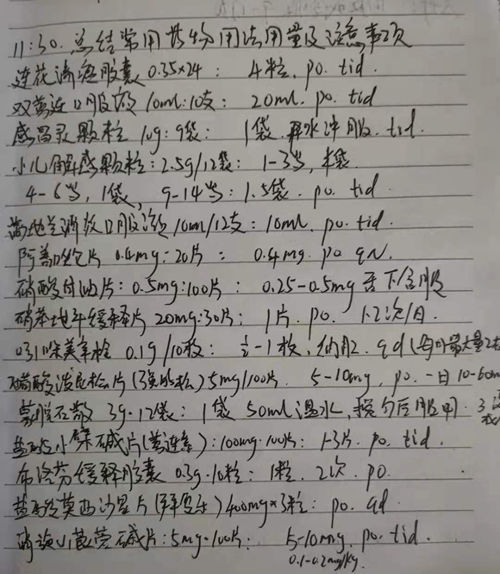 11:30. 总结常用药物用法用量及注意事项
连花清瘟胶囊 0.35×24: 4粒. po. tid.
双黄连口服液 10ml:10支: 20ml. po. tid
感冒灵颗粒 10g:9袋: 1袋. 开水冲服. tid.
小儿解感颗粒:2.5g/12袋: 1-3岁, 半袋
4-6岁, 1袋, 9-14岁:1.5袋. po. tid
蒲地兰消炎口服液 10ml/12支: 10ml. po. tid.
片 0.4mg:20片: 0.4mg. po qN.
硝酸甘油片:0.5mg:100片: 0.25-0.5mg 舌下含服
硝苯地平缓释片 20mg:30片: 1片. po. 1-2次/日.
吲哚美辛栓 0.1g/10枚: ½-1枚, 纳肛. qd (每日最大量2枚
醋酸泼尼松片(强的松) 5mg/100片. 5-10mg, po. 一日10-60m
蒙脱石散 3g·12袋: 1袋 50ml温水, 搅匀后服用. 3次
盐酸小檗碱片(黄连素):100mg·100片: 1-3片. po. tid.
布洛芬缓释胶囊 0.3g·10粒: 1粒. 2次. po.
盐酸莫西沙星片(拜复乐) 400mg×3粒: po. qd.
消旋山莨菪碱片:5mg·100片: 5-10mg. po. tid.
0.1-0.2mg/kg.